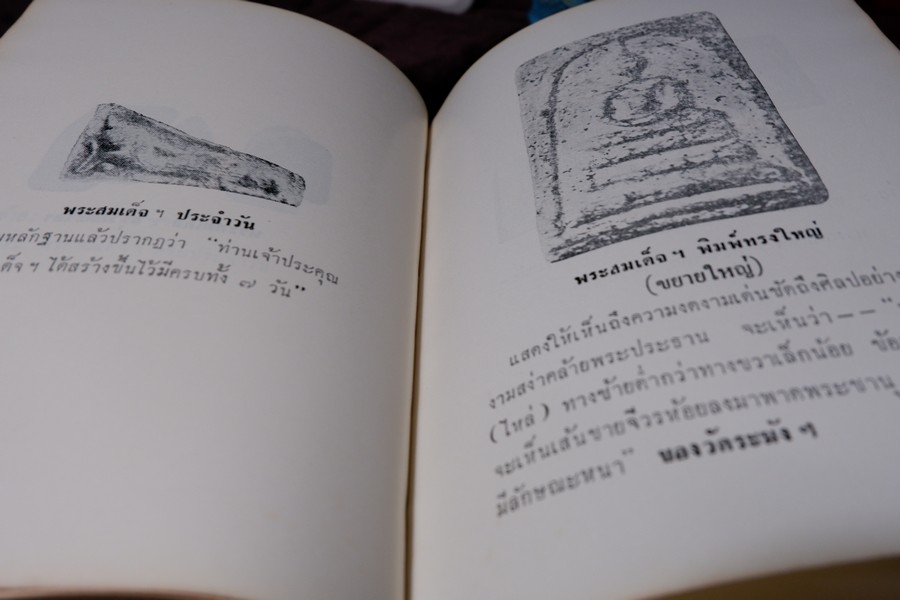 พระสมเด็จ ฯ ประจำวัน
หลักฐานแล้วปรากฏว่า "ท่านเจ้าประคุณ
ด็จ ฯ ได้สร้างขึ้นไว้มีครบทั้ง ๗ วัน"
พระสมเด็จ ฯ พิมพ์ทรงใหญ่
(ขยายใหญ่)
แสดงให้เห็นถึงความงดงามเด่นชัดถึงศิลปอย่าง
งามสง่าคล้ายพระประธาน จะเห็นว่า — — "
(ไหล่) ทางซ้ายต่ำกว่าทางขวาเล็กน้อย ข้อ
จะเห็นเส้นชายจีวรห้อยลงมาพาดพระชานุ
มีลักษณะหนา" ของวัดระฆัง ฯ